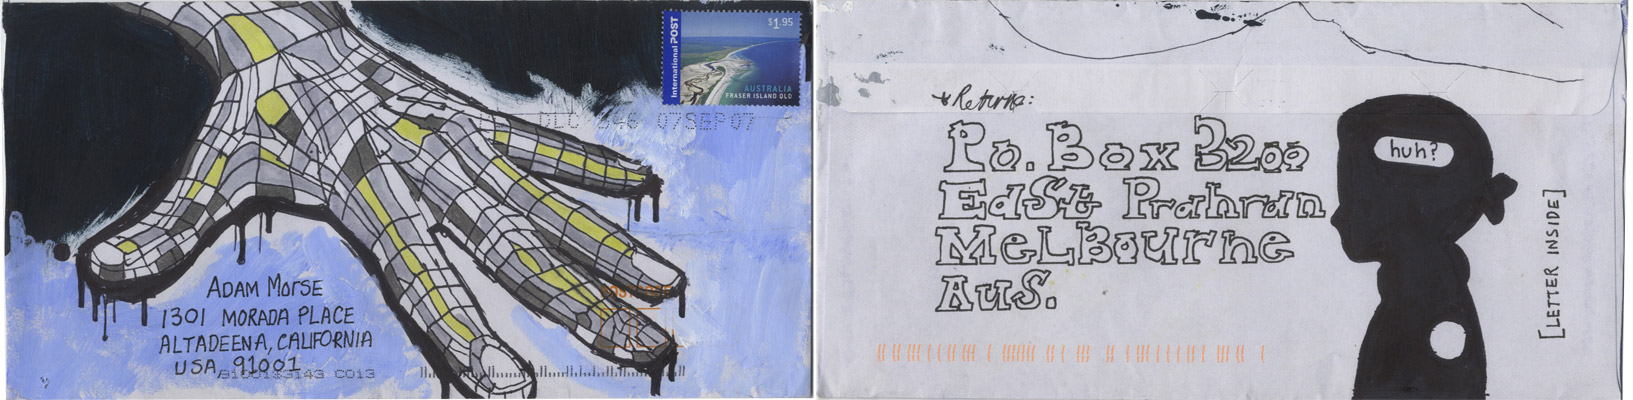 $1.95
International POST
AUSTRALIA
FRASER ISLAND QLD
07SEP07
ADAM MORSE
1301 MORADA PLACE
ALTADEENA, CALIFORNIA
USA 91001
Return:
Po. Box 3200
EaSt Prahran
MeLBourne
AuS.
huh?
[LETTER INSIDE]